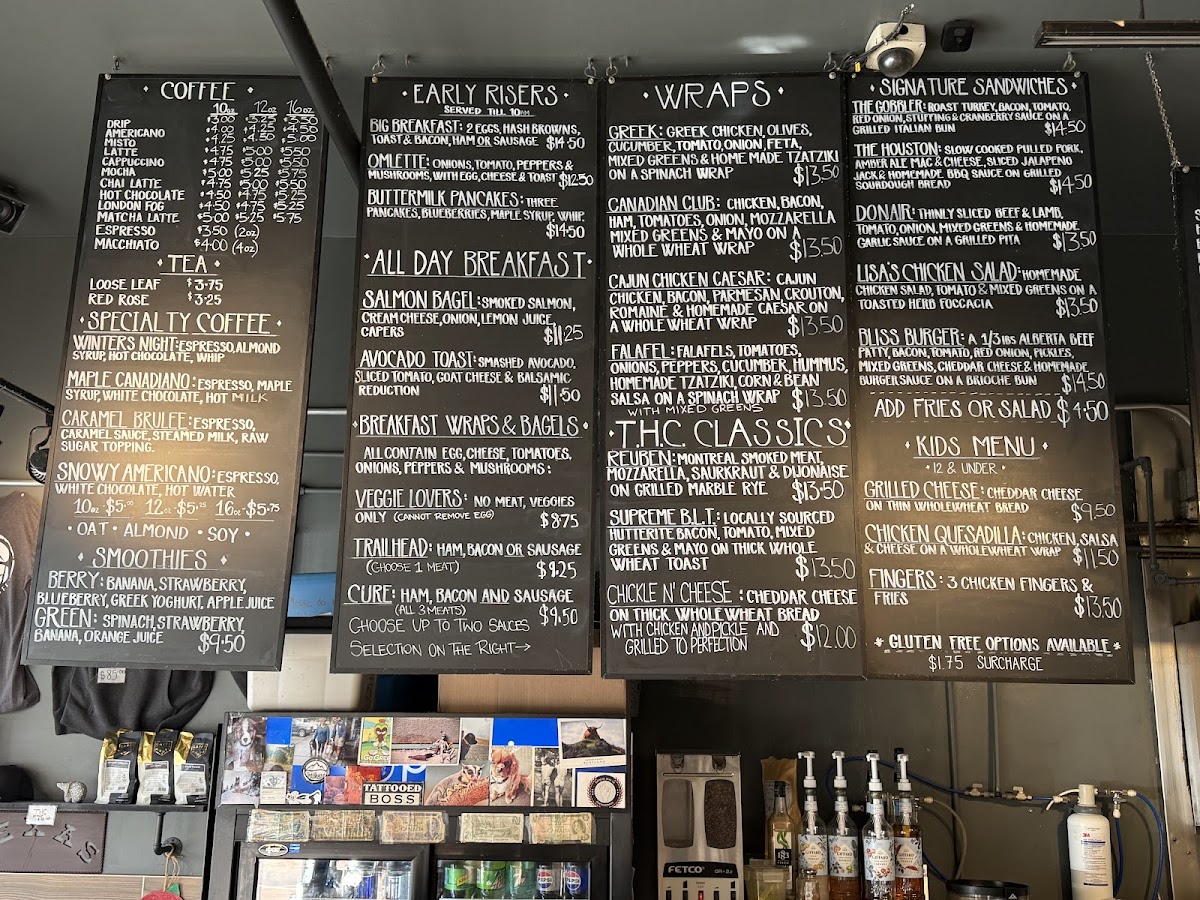 · COFFEE ·
10oz 12oz 16oz
DRIP $3.00 $3.25 $3.50
AMERICANO $4.00 $4.25 $4.50
MISTO $4.25 $4.50 $5.00
LATTE $4.75 $5.00 $5.50
CAPPUCCINO $4.75 $5.00 $5.50
MOCHA $5.00 $5.25 $5.75
CHAI LATTE $4.75 $5.00 $5.50
HOT CHOCOLATE $4.50 $4.75 $5.25
LONDON FOG $4.50 $4.75 $5.25
MATCHA LATTE $5.00 $5.25 $5.75
ESPRESSO $3.50 (2oz)
MACCHIATO $4.00 (4oz)
· TEA ·
LOOSE LEAF $3.75
RED ROSE $3.25
· SPECIALTY COFFEE ·
WINTERS NIGHT: ESPRESSO, ALMOND
SYRUP, HOT CHOCOLATE, WHIP
MAPLE CANADIANO: ESPRESSO, MAPLE
SYRUP, WHITE CHOCOLATE, HOT MILK
CARAMEL BRULEE: ESPRESSO,
CARAMEL SAUCE, STEAMED MILK, RAW
SUGAR TOPPING.
SNOWY AMERICANO: ESPRESSO,
WHITE CHOCOLATE, HOT WATER
10oz $5.00 12oz $5.25 16oz $5.75
· OAT · ALMOND · SOY ·
· SMOOTHIES ·
BERRY: BANANA, STRAWBERRY,
BLUEBERRY, GREEK YOGHURT, APPLE JUICE
GREEN: SPINACH, STRAWBERRY,
BANANA, ORANGE JUICE $9.50
· EARLY RISERS ·
SERVED TILL 10AM
BIG BREAKFAST: 2 EGGS, HASH BROWNS,
TOAST & BACON, HAM OR SAUSAGE $14.50
OMLETTE: ONIONS, TOMATO, PEPPERS &
MUSHROOMS, WITH EGG, CHEESE & TOAST $12.50
BUTTERMILK PANCAKES: THREE
PANCAKES, BLUEBERRIES, MAPLE SYRUP, WHIP
$14.50
· ALL DAY BREAKFAST ·
SALMON BAGEL: SMOKED SALMON,
CREAM CHEESE, ONION, LEMON JUICE
CAPERS $11.25
AVOCADO TOAST: SMASHED AVOCADO,
SLICED TOMATO, GOAT CHEESE & BALSAMIC
REDUCTION $11.50
· BREAKFAST WRAPS & BAGELS ·
ALL CONTAIN EGG, CHEESE, TOMATOES,
ONIONS, PEPPERS & MUSHROOMS:
VEGGIE LOVERS: NO MEAT, VEGGIES
ONLY (CANNOT REMOVE EGG) $8.75
TRAILHEAD: HAM, BACON OR SAUSAGE
(CHOOSE 1 MEAT) $9.25
CURE: HAM, BACON AND SAUSAGE
(ALL 3 MEATS) $9.50
CHOOSE UP TO TWO SAUCES
SELECTION ON THE RIGHT →
· WRAPS ·
GREEK: GREEK CHICKEN, OLIVES,
CUCUMBER, TOMATO, ONION, FETA,
MIXED GREENS & HOME MADE TZATZIKI
ON A SPINACH WRAP $13.50
CANADIAN CLUB: CHICKEN, BACON,
HAM, TOMATOES, ONION, MOZZARELLA
MIXED GREENS & MAYO ON A
WHOLE WHEAT WRAP $13.50
CAJUN CHICKEN CAESAR: CAJUN
CHICKEN, BACON, PARMESAN, CROUTON,
ROMAINE & HOMEMADE CAESAR ON
A WHOLE WHEAT WRAP $13.50
FALAFEL: FALAFELS, TOMATOES,
ONIONS, PEPPERS, CUCUMBER, HUMMUS,
HOMEMADE TZATZIKI, CORN & BEAN
SALSA ON A SPINACH WRAP $13.50
WITH MIXED GREENS
· T.H.C. CLASSICS ·
REUBEN: MONTREAL SMOKED MEAT,
MOZZARELLA, SAURKRAUT & DIJONAISE
ON GRILLED MARBLE RYE $13.50
SUPREME B.L.T: LOCALLY SOURCED
HUTTERITE BACON, TOMATO, MIXED
GREENS & MAYO ON THICK WHOLE
WHEAT TOAST $13.50
CHICKLE N' CHEESE: CHEDDAR CHEESE
ON THICK WHOLE WHEAT BREAD
WITH CHICKEN AND PICKLE AND
GRILLED TO PERFECTION $12.00
· SIGNATURE SANDWICHES ·
THE GOBBLER: ROAST TURKEY, BACON, TOMATO,
RED ONION, STUFFING & CRANBERRY SAUCE ON A
GRILLED ITALIAN BUN $14.50
THE HOUSTON: SLOW COOKED PULLED PORK,
AMBER ALE MAC & CHEESE, SLICED JALAPENO
JACK & HOMEMADE BBQ SAUCE ON GRILLED
SOURDOUGH BREAD $14.50
DONAIR: THINLY SLICED BEEF & LAMB,
TOMATO, ONION, MIXED GREENS & HOMEMADE
GARLIC SAUCE ON A GRILLED PITA $13.50
LISA'S CHICKEN SALAD: HOMEMADE
CHICKEN SALAD, TOMATO & MIXED GREENS ON A
TOASTED HERB FOCCACIA $13.50
BLISS BURGER: A 1/3 lbs ALBERTA BEEF
PATTY, BACON, TOMATO, RED ONION, PICKLES,
MIXED GREENS, CHEDDAR CHEESE & HOMEMADE
BURGER SAUCE ON A BRIOCHE BUN $14.50
ADD FRIES OR SALAD $4.50
· KIDS MENU ·
· 12 & UNDER ·
GRILLED CHEESE: CHEDDAR CHEESE
ON THIN WHOLEWHEAT BREAD $9.50
CHICKEN QUESADILLA: CHICKEN, SALSA
& CHEESE ON A WHOLEWHEAT WRAP $11.50
FINGERS: 3 CHICKEN FINGERS &
FRIES $13.50
* GLUTEN FREE OPTIONS AVAILABLE *
$1.75 SURCHARGE
$85.00
TATTOOED
BOSS
FETCO
pepsi
3M